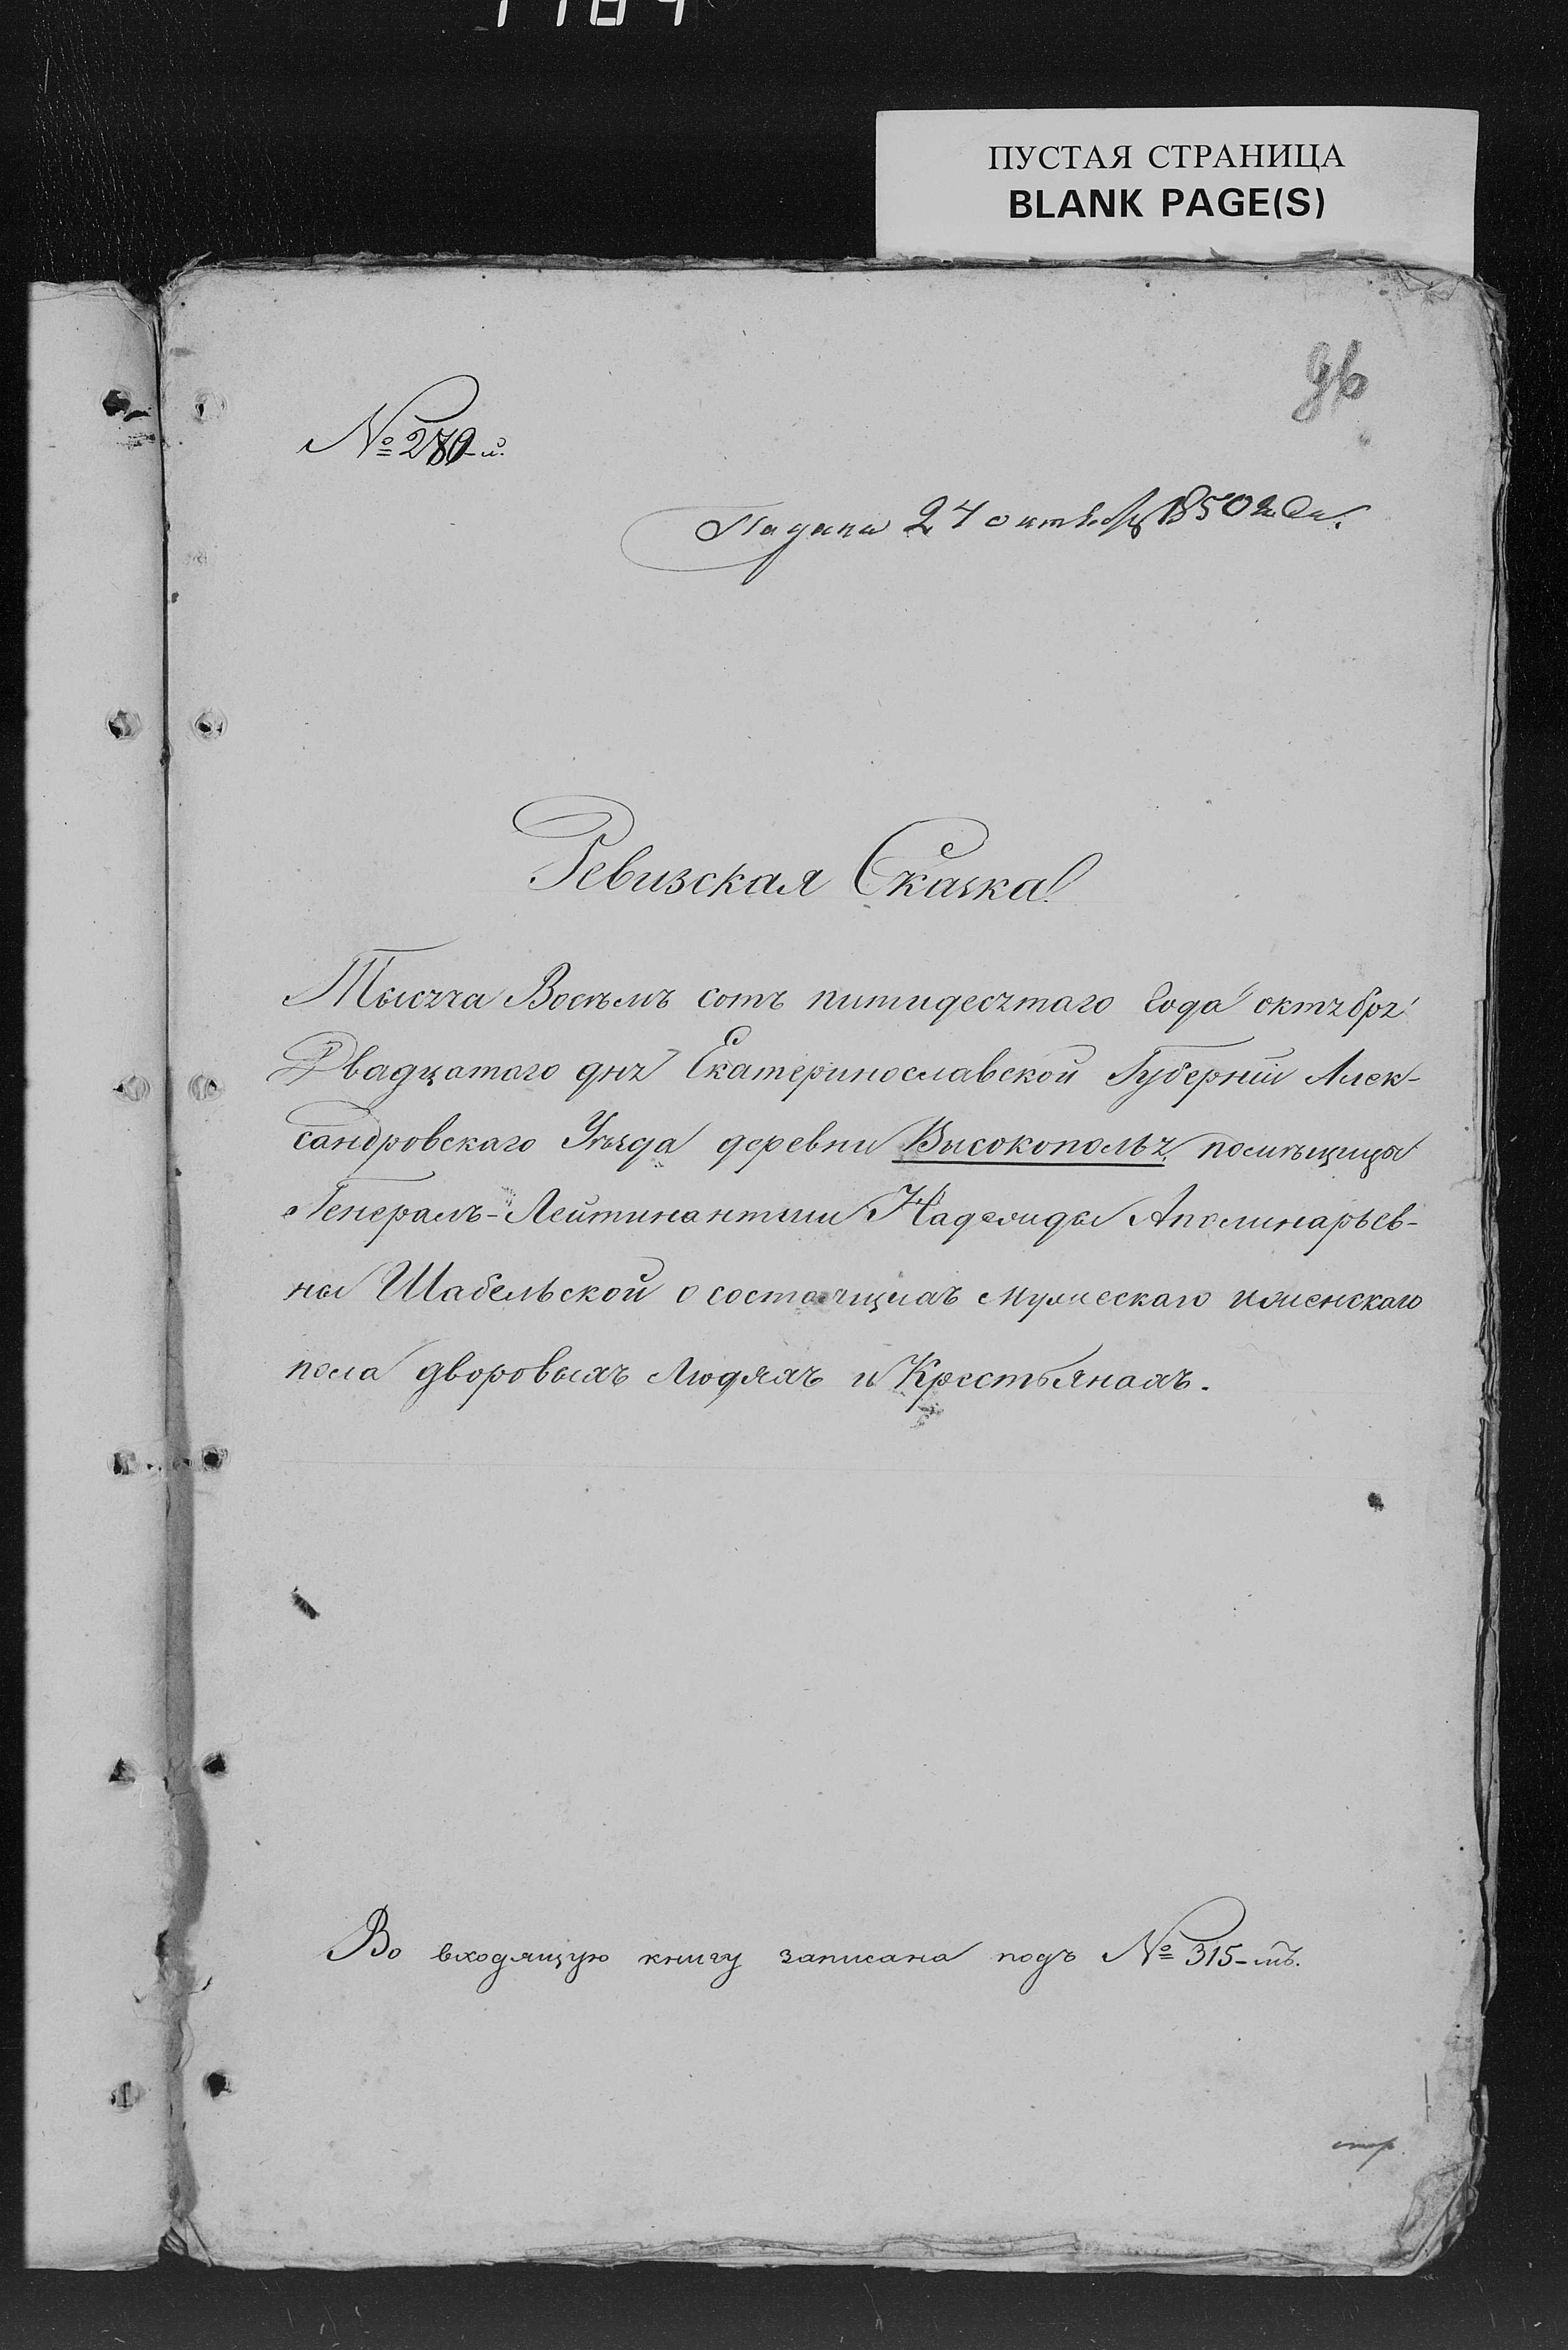 ПУСТАЯ СТРАНИЦА
BLANK PAGE(S)
96
№ 280-й.
Подана 24 октября 1850 года.
Ревизская Сказка.
Тысяча Восемъ сотъ пятидесятаго года октября
Двадцатаго дня Екатеринославской Губерніи Алек-
сандровскаго Уѣзда деревни Высокополья помѣщицы
Генералъ-Лейтинантши Надежды Аполинарьев-
ны Шабельской о состоящихъ мужескаго и женскаго
пола дворовыхъ Людяхъ и Крестьянахъ.
Во входящую книгу записана подъ № 315-мъ.